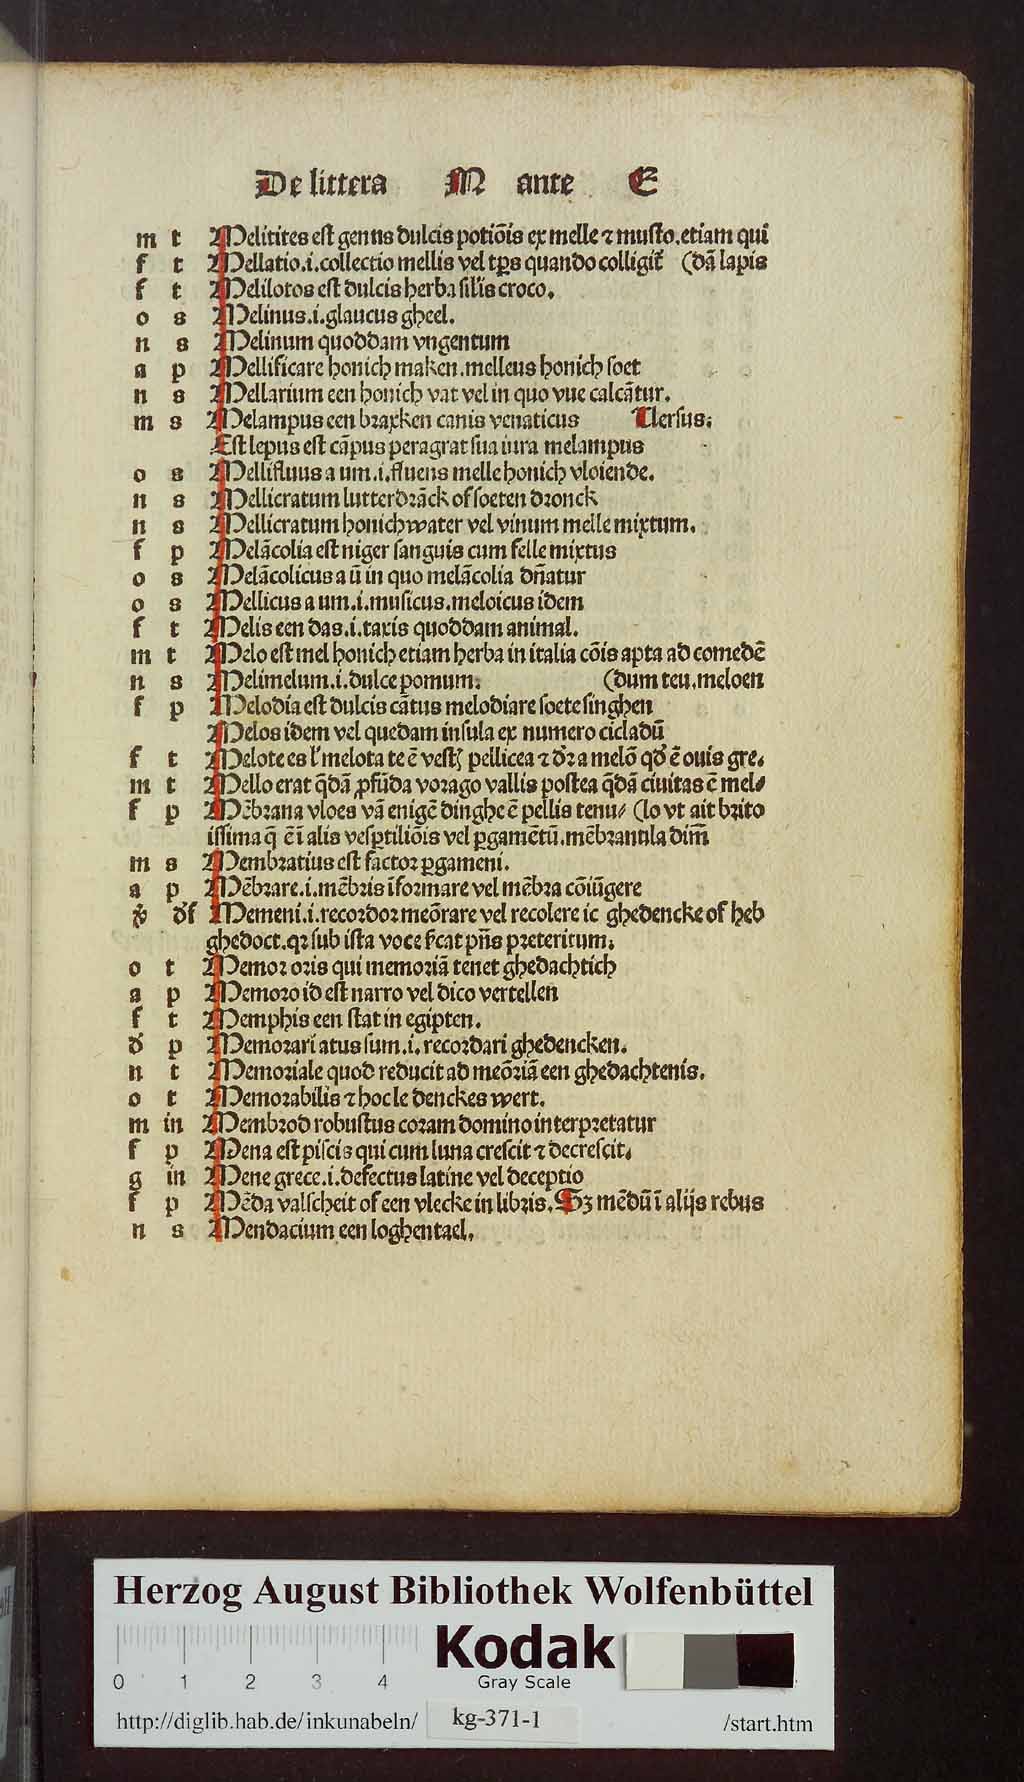 De littera M ante E
m t Melitites est genus dulcis potiōis ex melle ⁊ musto.etiam qui
f t Mellatio.i.collectio mellis vel tp̄s quando colligit᷑ (dā lapis
f t Melilotos est dulcis herba silis croco.
o s Melinus.i.glaucus gheel.
n s Melinum quoddam vngentum
a p Mellificare honich maken.melleus honich soet
n s Mellarium een honich vat vel in quo vue calcātur.
m s Melampus een braxken canis venaticus Uersus:
Est lepus est cāpus peragrat sua iura melampus
o s Mellifluus a um.i.fluens melle honich vloiende.
n s Mellicratum lutterdrāck of soeten dronck
n s Mellicratum honichwater vel vinum melle mixtum.
f p Melācolia est niger sanguis cum felle mixtus
o s Melācolicus a ū in quo melācolia dn̄atur
o s Mellicus a um.i.musicus.meloicus idem
f t Melis een das.i.taxis quoddam animal.
m t Melo est mel honich etiam herba in italia cōis apta ad comedē
n s Melimelum.i.dulce pomum. (dum teu.meloen
f p Melodia est dulcis cātus melodiare soete singhen
Melos idem vel quedam insula ex numero cicladū
f t Melote es l' melota te ē vestꝫ pellicea ⁊ dr̄ a melō qd̄ ē ouis gre.
m t Mello erat q̄dā ꝓfūda vorago vallis postea q̄dā ciuitas ē mel⸗
f p Mēbrana vloes vā enigē dinghe ē pellis tenu⸗ (lo vt ait brito
issima q̄ ē ī alis vesꝑtiliōis vel ꝑgamētū.mēbranula dim̄
m s Membratius est factor ꝑgameni.
a p Mēbrare.i.mēbris īformare vel mēbra cōiūgere
Memeni.i.recordor meōrare vel recolere ic ghedencke of heb
ghedoct.qꝛ sub ista voce pn̄s preteritum.
o t Memor oris qui memoriā tenet ghedachtich
a p Memoro id est narro vel dico vertellen
f t Memphis een stat in egipten.
d p Memorari atus sum.i.recordari ghedencken.
n t Memoriale quod reducit ad meōriā een ghedachtenis.
o t Memorabilis ⁊ hoc le denckes wert.
m in Membrod robustus coram domino interpretatur
f p Mena est piscis qui cum luna crescit ⁊ decrescit.
g in Mene grece.i.defectus latine vel deceptio
f p Mēda valscheit of een vlecke in libris.Sꝫ mēdū ī alijs rebus
n s Mendacium een loghentael.
Herzog August Bibliothek Wolfenbüttel
Kodak
Gray Scale
0 1 2 3 4
http://diglib.hab.de/inkunabeln/ kg-371-1 /start.htm